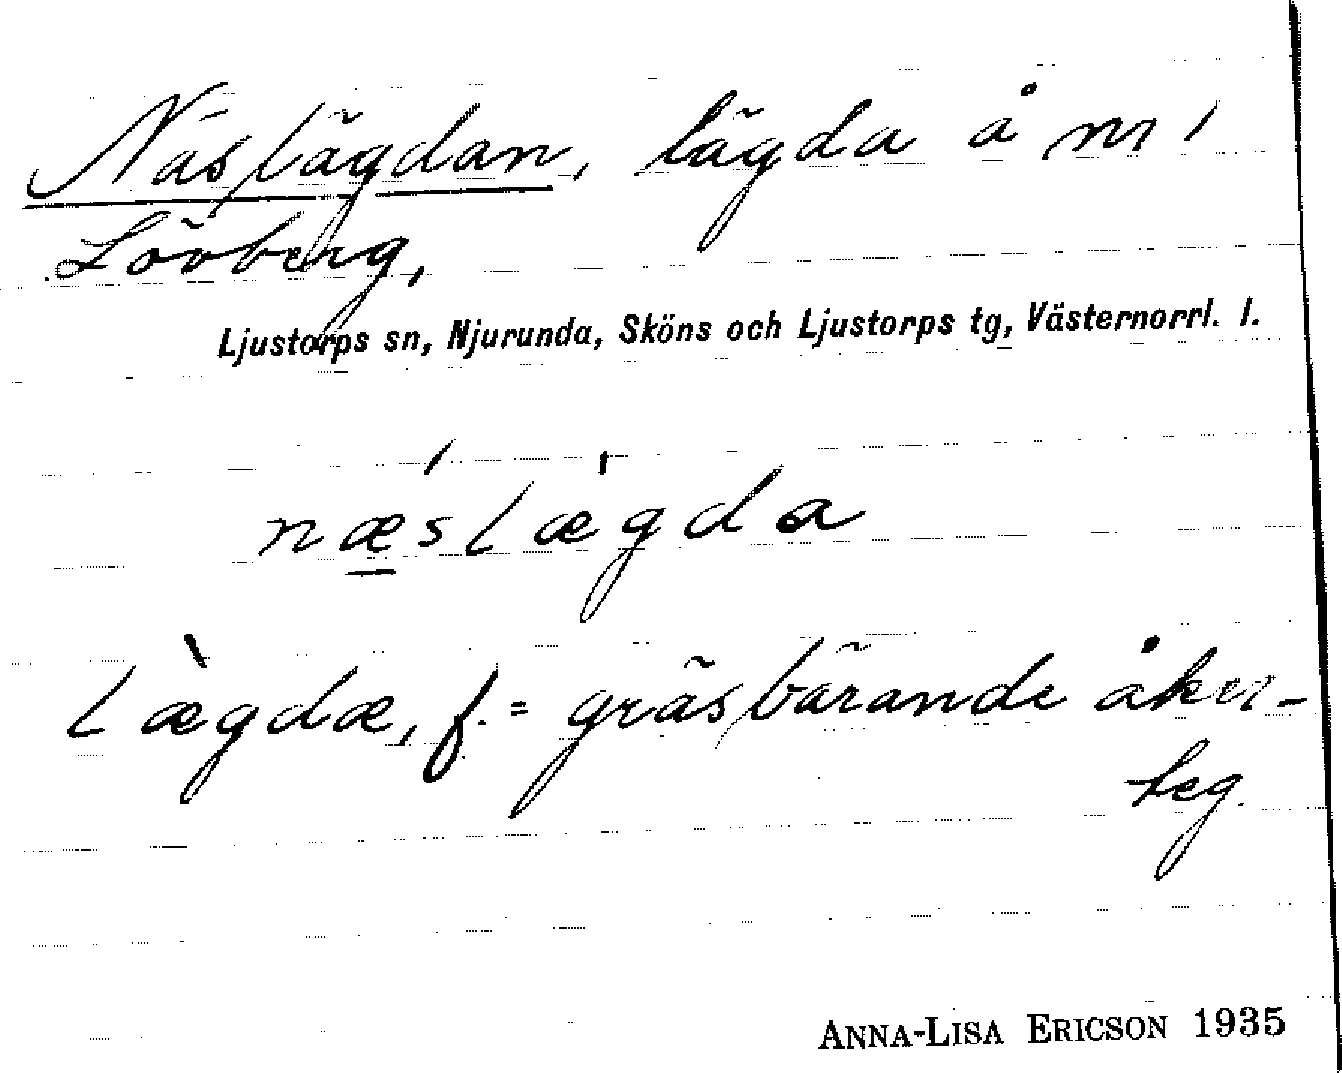 Näs/lägdan, lägda å nr 1
Lövberg,
Ljustorps sn, Njurunda, Sköns och Ljustorps tg, Västernorrl. l.
næslægda
lægdæ, f. = gräsbärande åker-
teg.
ANNA-LISA ERICSON 1935